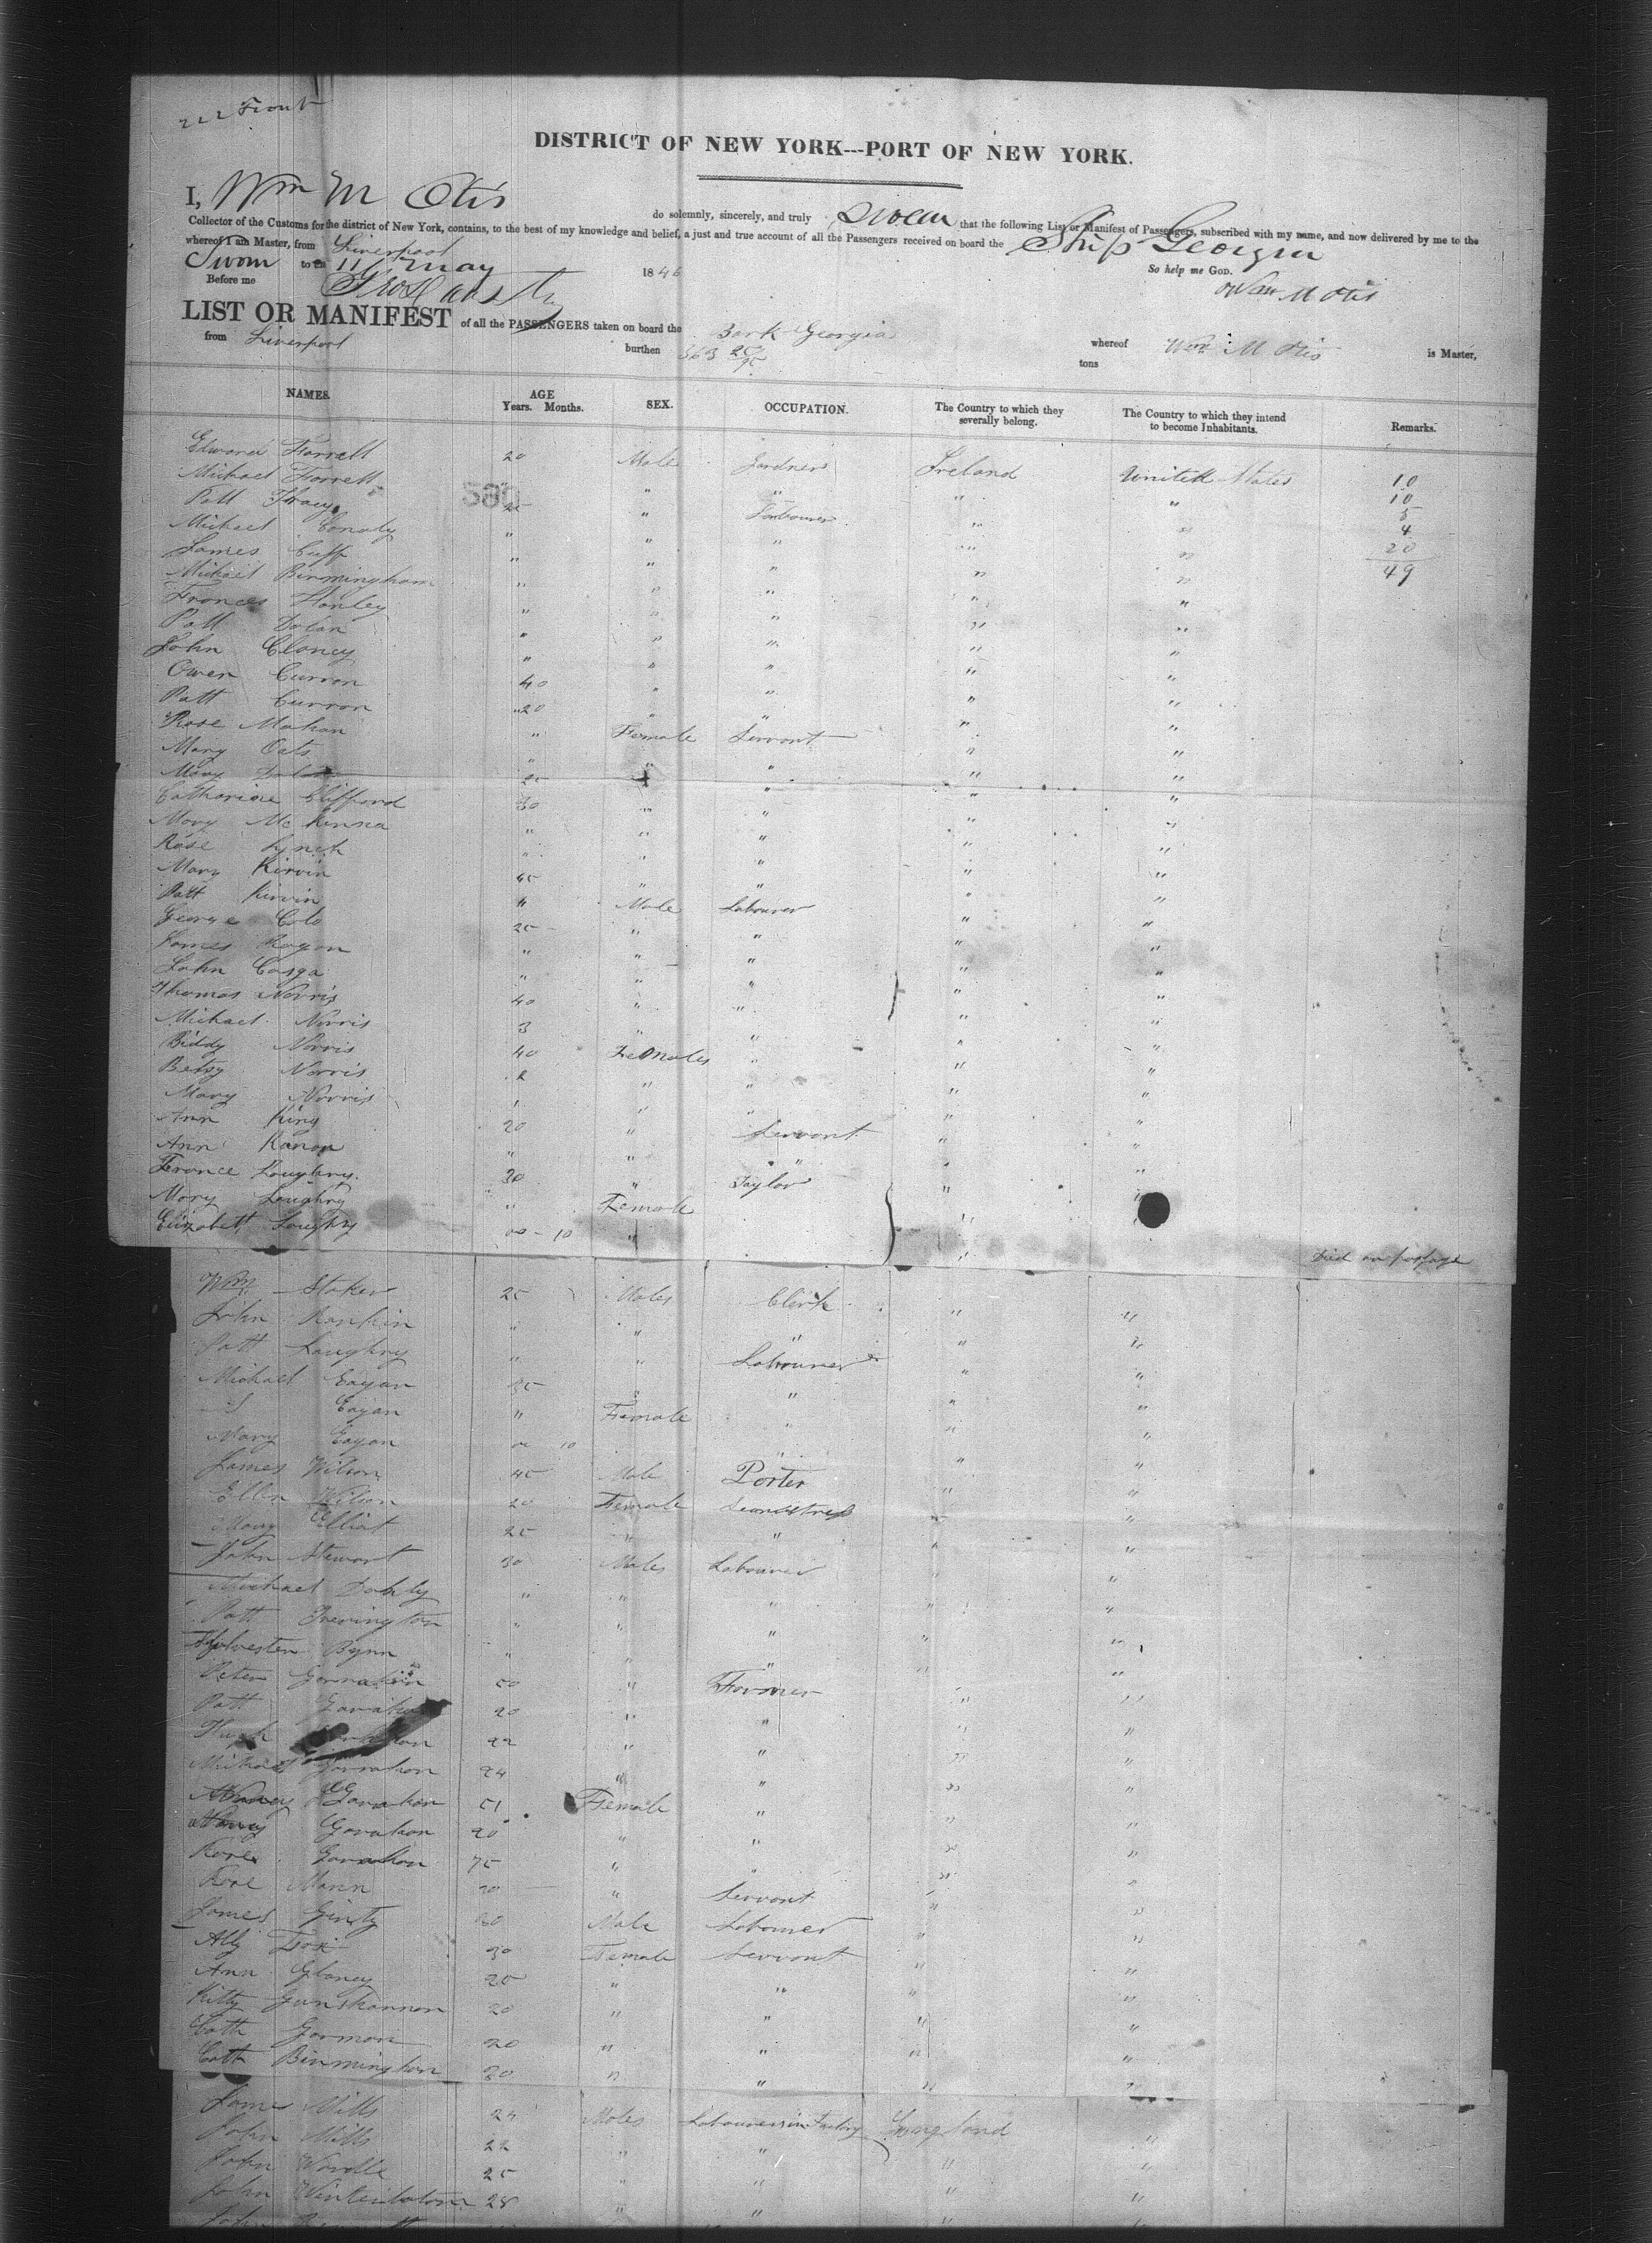 222 Front
DISTRICT OF NEW YORK---PORT OF NEW YORK.
I, Wm M Otis do solemnly, sincerely, and truly swear that the following List or Manifest of Passengers, subscribed with my name, and now delivered by me to the
Collector of the Customs for the district of New York, contains, to the best of my knowledge and belief, a just and true account of all the Passengers received on board the Ship Georgia
whereof I am Master, from Liverpool
Sworn to 11 May 1846 So help me God.
Before me Wm M Otis
LIST OR MANIFEST of all the PASSENGERS taken on board the Bark Georgia whereof Wm M Otis is Master,
from Liverpool burthen 363 tons
NAMES. AGE SEX. OCCUPATION. The Country to which they The Country to which they intend Remarks.
Years. Months. severally belong. to become Inhabitants.
Edward Farrell 20 Male Gardner Ireland United States 10
Michael Farrell " " " " 10
Patt Tracy 25 " Labourer " " 5
Michael Conaly " " " " " 4
James Cuff " " " " " 20
Michael Birmingham " " " " " 49
Frances Hanley " " " " "
Patt Dolan " " " " "
John Clancy " " " " "
Owen Curran 40 " " " "
Patt Curran 20 " " " "
Rose Mahan " Female Servant " "
Mary Oats " " " " "
Mary 25 " " " "
Catharine Clifford 30 " " " "
Mary McKenna " " " " "
Rose Lynch " " " " "
Mary Kirvin 45 " " " "
Patt Kirvin " Male Labourer " "
George Cole 25 " " " "
James Ragan " " " " "
John Casga " " " " "
Thomas Norris 40 " " " "
Michael Norris 3 " " " "
Biddy Norris 40 Females " " "
Betsy Norris 2 " " " "
Mary Norris 1 " " " "
Ann King 20 " Servant " "
Ann Kanon " " " " "
Terance Loughry 30 " Taylor " "
Mary Loughry " Female "
Elizabett Loughry 00 - 10 " " Died on passage
Wm Staker 25 Males Clerk " "
John Rankin " " " " "
Patt Loughry " " Labourer " "
Michael Eagan 35 " " " "
Eagan " Female " " "
Mary Eagan 10 " " "
James Wilson 45 Male Porter " "
Ellen Wilson 20 Female Seamstress " "
Mary Elliot 25 " " " "
John Stewart 30 Males Labourer " "
Michael Dahly " " " " "
Patt Trevington " " " " "
Sylvester Bynn " " " " "
Peter Garrahan 50 " Farmer " "
Patt Garahan 20 " " " "
Hugh 22 " " " "
Michael Garrahan 24 " " " "
Nancy Garahan 51 Female " " "
Nancy Garahan 20 " " " "
Rose Garahan 75 " " " "
Rose Mann 20 " Servant " "
James Ginty 30 Male Labourer " "
Ally Fox 30 Female Servant " "
Ann Glancy 20 " " " "
Kitty Gunshannon 20 " " " "
Cath Gorman 20 " " " "
Cath Birmingham 20 " " " "
Mills 24 Males Labourers in Factory England "
John Mills 22 " " " "
John Wardle 25 " " " "
John Winterbotom 28 " " " "
John